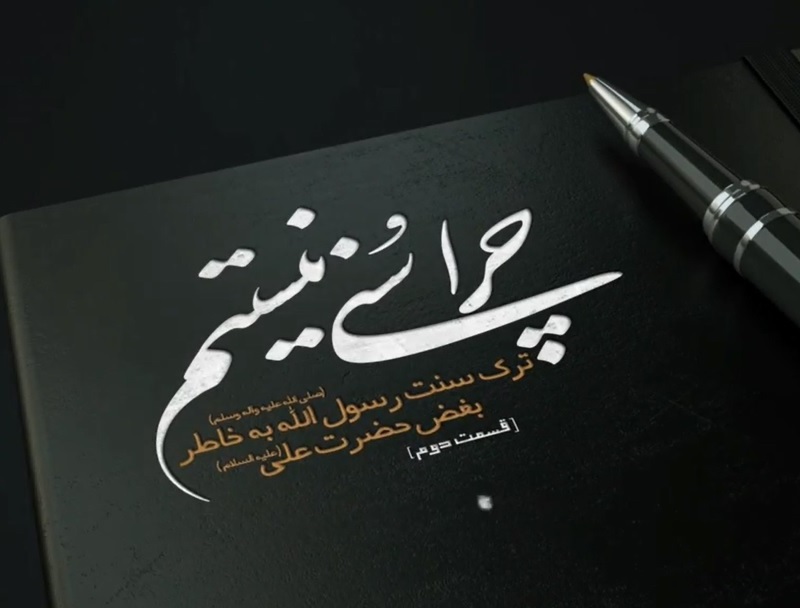 چرا سُنی نیستم
ترک سنت رسول الله (صلی الله علیه وآله وسلم) به خاطر
بغض حضرت علی (علیه السلام)
[قسمت دوم]